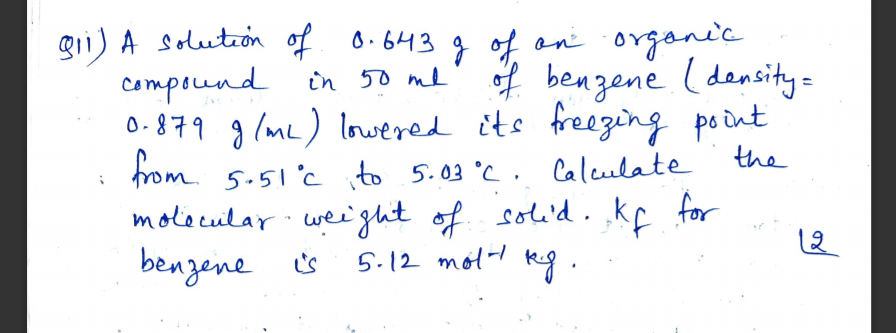 Q11) A solution of 0.643 g of an organic
compound in 50 ml of benzene (density=
0.879 g/mL) lowered its freezing point
from 5.51°C to 5.03°C. Calculate the
molecular weight of solid. Kf for
benzene is 5.12 mol-1 kg.
12